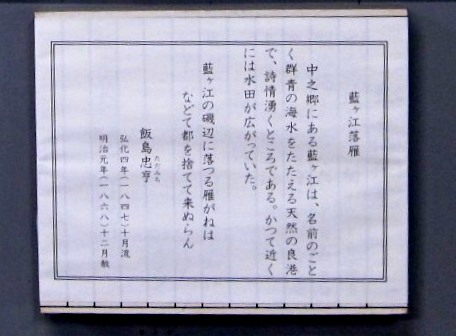 藍ヶ江落雁
中之郷にある藍ヶ江は、名前のごと
く群青の海水をたたえる天然の良港
で、詩情湧くところである。かつて近く
には水田が広がっていた。
藍ヶ江の磯辺に落つる雁がねは
などて都を捨てて来ぬらん
飯島忠亨
ただみち
弘化四年(一八四七)十月流
明治元年(一八六八)十二月赦